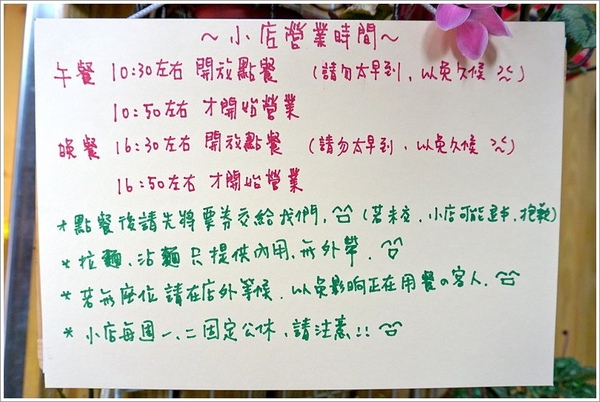 ～小店營業時間～
午餐 10:30左右 開放點餐 (請勿太早到,以免久候
10:50左右 才開始營業
晚餐 16:30左右 開放點餐 (請勿太早到,以免久候 )
16:50左右 才開始營業
* 點餐後請先將票券交給我們, (若未交,小店可能退书,抱歉)
* 拉麵、沾麵 只提供內用,無外帶.
* 若無座位 請在店外等候. 以免影响正在用餐の客人.
* 小店每週一、二固定公休,請注意!!